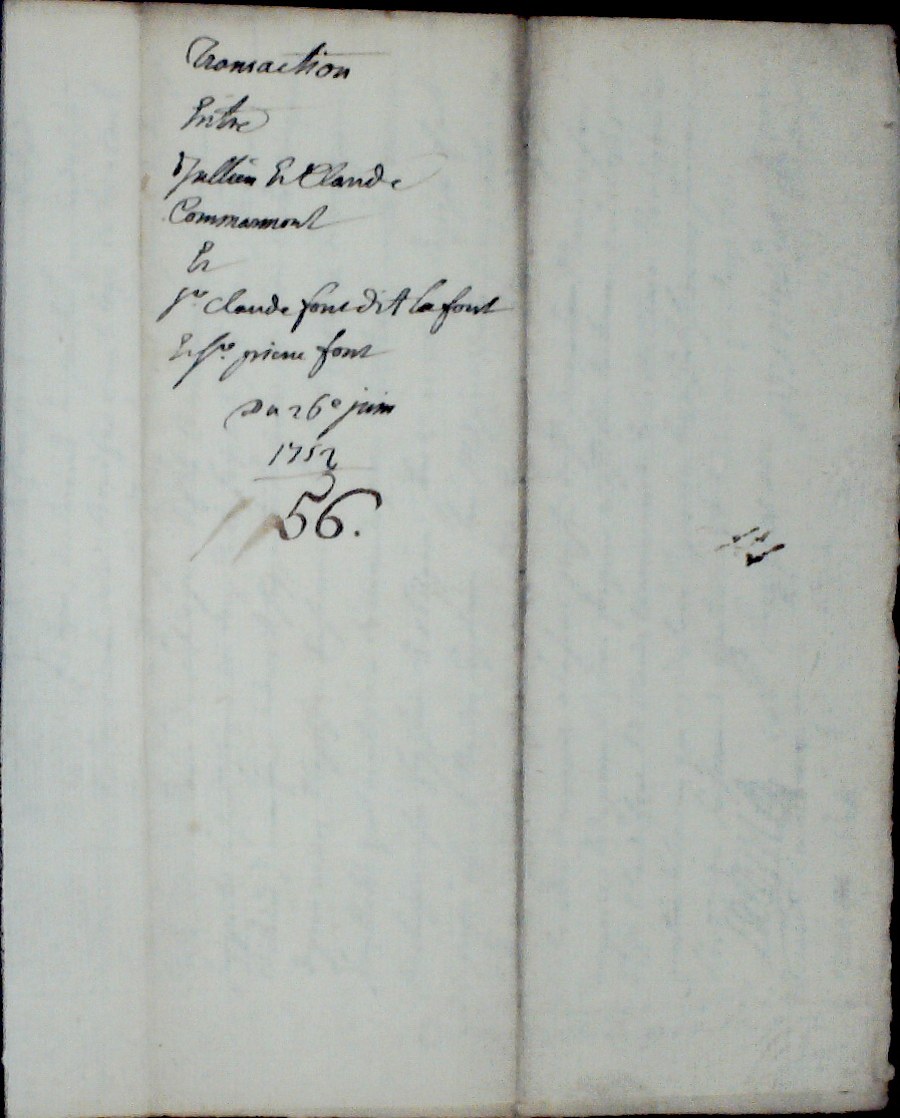 Transaction
Entre
Jullien Et Claude
Commarmont
Et
Sr. Claude font dit la font
Et Sr. pierre font
Du 26e juin
1752
56.